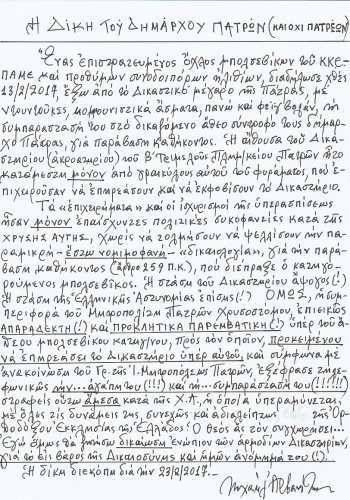 Ἡ ΔΙΚΗ ΤΟΥ ΔΗΜΑΡΧΟΥ ΠΑΤΡΩΝ (ΚΑΙ ΟΧΙ ΠΑΤΡΕΩΝ)
Ἕνας ἐπιστρατευμένος ὄχλος μπολσεβίκων τοῦ ΚΚΕ-
ΠΑΜΕ καί προθύμων συνοδοιπόρων ἠλιθίων, διαδήλωσε χθές
13/2/2017, ἔξω ἀπό τό Δικαστικό μέγαρο τῆς Πάτρας, μέ
ντουντοῦκες, κομμουνιστικά ἄσματα, πανώ καί φέιγ βολάν, τήν
συμπαράστασή του στό δικαζόμενο ἄθεο σύντροφό τους δήμαρ-
χο Πάτρας, γιά παράβαση καθήκοντος. Ἡ αἴθουσα τοῦ Δικα-
στηρίου (ἀκροατηρίου) τοῦ Β΄ Τριμελοῦς Πλημ/κείου Πατρῶν ἦτο
κατάμεστη μόνον ἀπό γραικύλους αὐτοῦ τοῦ φυράματος, πού ἐ-
πιχειροῦσαν νά ἐπηρεάσουν καί νά ἐκφοβίσουν τό Δικαστήριο.
Τά «ἐπιχειρήματα» καί οἱ ἰσχυρισμοί τῆς ὑπερασπίσεως
ἦσαν μόνον ἐπαίσχυντες πολιτικές συκοφαντίες κατά τῆς
ΧΡΥΣΗΣ ΑΥΓΗΣ, χωρίς νά τολμήσουν νά ψελλίσουν τήν πα-
ραμικρή - ἔστω νομιμοφανῆ - «δικαιολογία», γιά τήν παρά-
βαση καθήκοντος (ἄρθρο 259 Π.Κ.), πού διέπραξε ὁ κατηγο-
ρούμενος μπολσεβῖκος. Ἡ στάση τοῦ Δικαστηρίου ἄψογος (!)
Ἡ στάση τῆς Ἑλληνικῆς Ἀστυνομίας ἐπίσης (!) ΟΜΩΣ, ἡ συμ-
περιφορά τοῦ Μητροπολίτη Πατρῶν Χρυσοστόμου, ἐπιεικῶς
ΑΠΑΡΑΔΕΚΤΗ (!) καί ΠΡΟΚΛΗΤΙΚΑ ΠΑΡΕΜΒΑΤΙΚΗ (!) ὑπέρ τοῦ ἀ-
θέου μπολσεβίκου κατηγ/νου, πρός τόν ὁποῖον, προκειμένου
νά ἐπηρεάσει τό Δικαστήριο ὑπέρ αὐτοῦ, καί σύμφωνα μέ
ἀνακοίνωση τοῦ Γρ. τῆς Ἱ. Μητροπόλεως Πατρῶν, ἐξέφρασε τηλε-
φωνικῶς τήν...ἀγάπη του (!!!) καί τή...συμπαράστασή του (!!!!!!)
στραφείς οὕτω ἄμεσα κατά τῆς Χ.Α., ἡ ὁποία ὑπεραμύνεται,
μέ ὅλες τίς δυνάμεις της, συνεχῶς καί ἀδιαλείπτως τῆς Ὀρ-
θοδόξου Ἐκκλησίας τῆς Ἑλλάδος! Ὁ Θεός ἄς τόν συγχωρέσει...
Ἐγώ ὅμως θά ζητήσω δικαίωση ἐνώπιον τῶν ἁρμοδίων Δικαστηρίων,
γιά τό εἰς βάρος τῆς Δικαιοσύνης καί ἡμῶν ἀνόμημά του (!).
Ἡ δίκη διεκόπη διά τήν 23/2/2017.